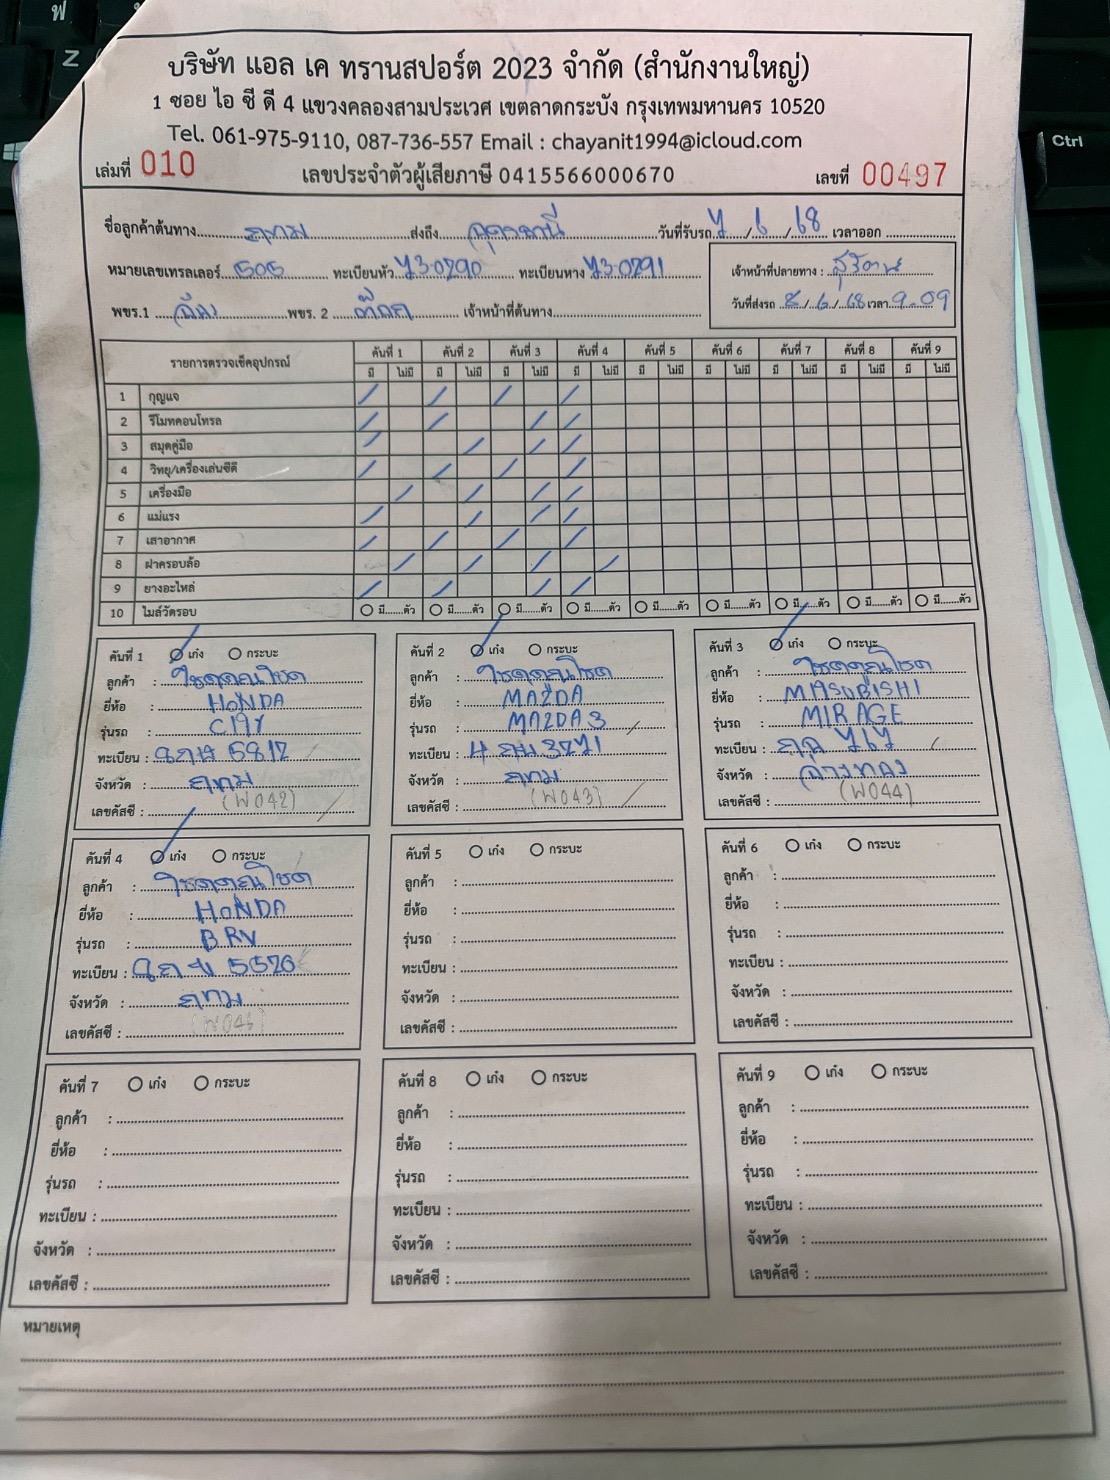 บริษัท แอล เค ทรานสปอร์ต 2023 จำกัด (สำนักงานใหญ่)
1 ซอย ไอ ซี ดี 4 แขวงคลองสามประเวศ เขตลาดกระบัง กรุงเทพมหานคร 10520
Tel. 061-975-9110, 087-736-557 Email : chayanit1994@icloud.com
เล่มที่ 010 เลขประจำตัวผู้เสียภาษี 0415566000670 เลขที่ 00497
ชื่อลูกค้าต้นทาง กทม ส่งถึง อุดรธานี วันที่รับรถ 7/6/68 เวลาออก
หมายเลขเทรลเลอร์ 505 ทะเบียนหัว 73-0290 ทะเบียนหาง 73-0291 เจ้าหน้าที่ปลายทาง :
พขร.1 พขร. 2 เจ้าหน้าที่ต้นทาง วันที่ส่งรถ 8/6/68 เวลา 9.09
รายการตรวจเช็คอุปกรณ์ คันที่ 1 คันที่ 2 คันที่ 3 คันที่ 4 คันที่ 5 คันที่ 6 คันที่ 7 คันที่ 8 คันที่ 9
มี ไม่มี มี ไม่มี มี ไม่มี มี ไม่มี มี ไม่มี มี ไม่มี มี ไม่มี มี ไม่มี มี ไม่มี
1 กุญแจ / / / /
2 รีโมทคอนโทรล / / / /
3 สมุดคู่มือ / / / /
4 วิทยุ/เครื่องเล่นซีดี / / / /
5 เครื่องมือ / / / /
6 แม่แรง / / / /
7 เสาอากาศ / / / /
8 ฝาครอบล้อ / / / /
9 ยางอะไหล่ / / / /
10 ไมล์วัดรอบ มี......ตัว มี......ตัว มี......ตัว มี......ตัว มี......ตัว มี......ตัว มี......ตัว มี......ตัว มี......ตัว
คันที่ 1 เก๋ง กระบะ
ลูกค้า : โชคคูณโชค
ยี่ห้อ : HONDA
รุ่นรถ : CITY
ทะเบียน : 5812
จังหวัด : กทม
เลขคัสซี : (W042)
คันที่ 2 เก๋ง กระบะ
ลูกค้า : โชคคูณโชค
ยี่ห้อ : MAZDA
รุ่นรถ : MAZDA 3
ทะเบียน : 4 กน 3271
จังหวัด : กทม
เลขคัสซี : (W043)
คันที่ 3 เก๋ง กระบะ
ลูกค้า : โชคคูณโชค
ยี่ห้อ : MITSUBISHI
รุ่นรถ : MIRAGE
ทะเบียน : 767
จังหวัด : อ่างทอง
เลขคัสซี : (W044)
คันที่ 4 เก๋ง กระบะ
ลูกค้า : โชคคูณโชค
ยี่ห้อ : HONDA
รุ่นรถ : BRV
ทะเบียน : 5526
จังหวัด : กทม
เลขคัสซี : (W045)
คันที่ 5 เก๋ง กระบะ
ลูกค้า :
ยี่ห้อ :
รุ่นรถ :
ทะเบียน :
จังหวัด :
เลขคัสซี :
คันที่ 6 เก๋ง กระบะ
ลูกค้า :
ยี่ห้อ :
รุ่นรถ :
ทะเบียน :
จังหวัด :
เลขคัสซี :
คันที่ 7 เก๋ง กระบะ
ลูกค้า :
ยี่ห้อ :
รุ่นรถ :
ทะเบียน :
จังหวัด :
เลขคัสซี :
คันที่ 8 เก๋ง กระบะ
ลูกค้า :
ยี่ห้อ :
รุ่นรถ :
ทะเบียน :
จังหวัด :
เลขคัสซี :
คันที่ 9 เก๋ง กระบะ
ลูกค้า :
ยี่ห้อ :
รุ่นรถ :
ทะเบียน :
จังหวัด :
เลขคัสซี :
หมายเหตุ
Ctrl
Z